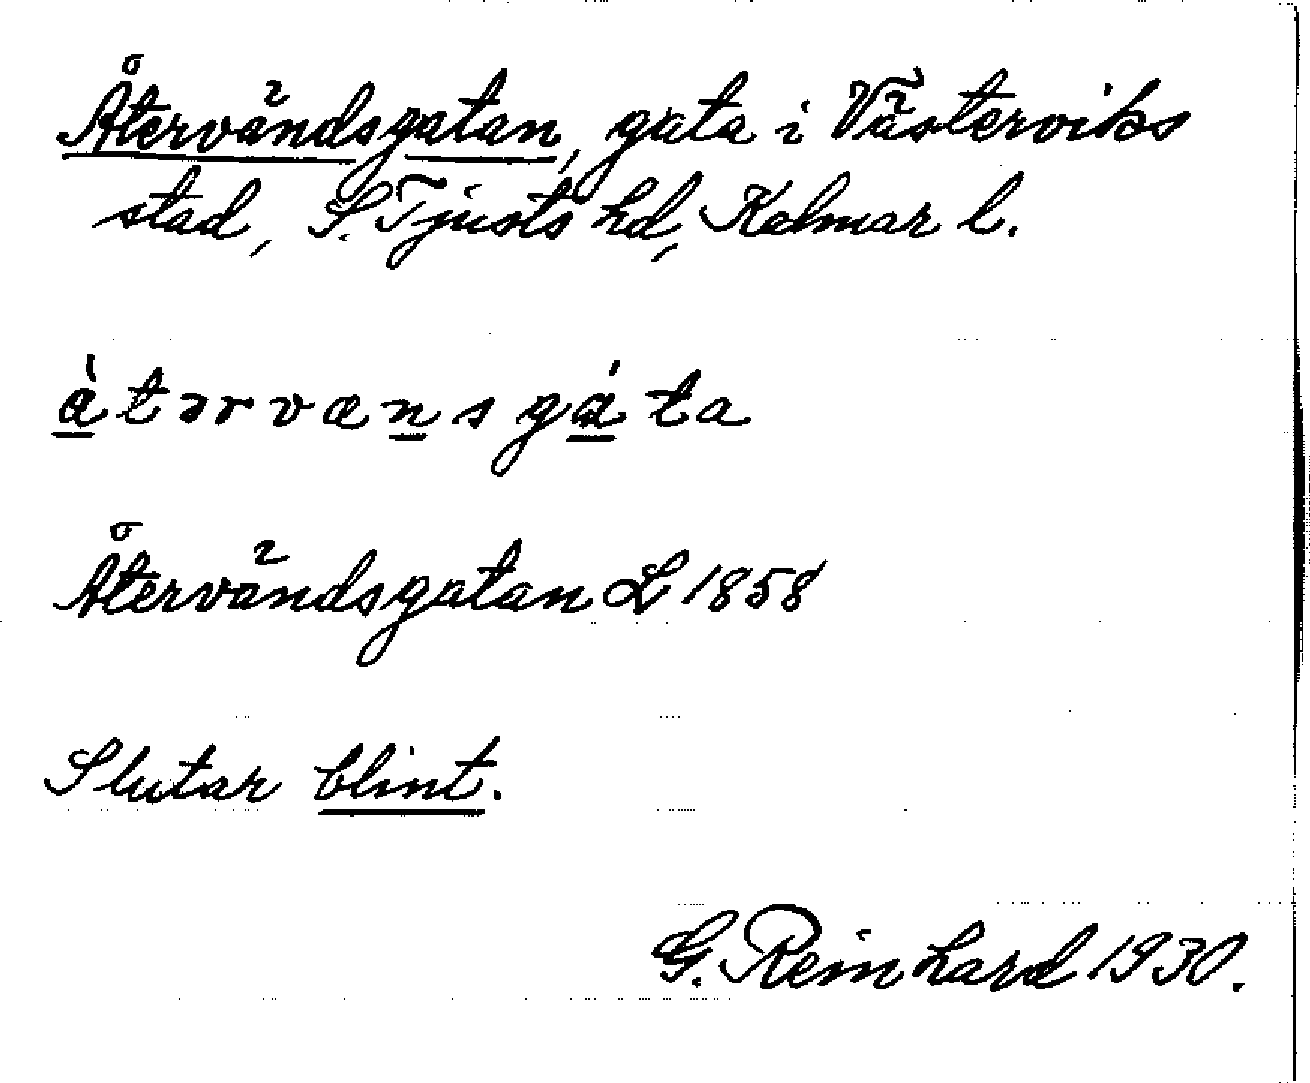 Återvändsgatan, gata i Västerviks
stad, S. Tjusts hd, Kalmar l.
àtərvænsgáta
Återvändsgatan L 1858
Slutar blint.
G. Reinhard 1930.